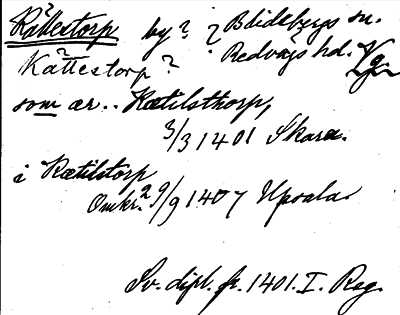 Kättestorp by? i Blidsbergs sn.
Kättestorp? Redvägs hd. Vg.
som ær.. Kætilsthorp,
3/3 1401 Skara.
i Kætilstorp
Omkr. 9/9 1407 Upsala.
Sv. dipl. fr. 1401. I. Reg.